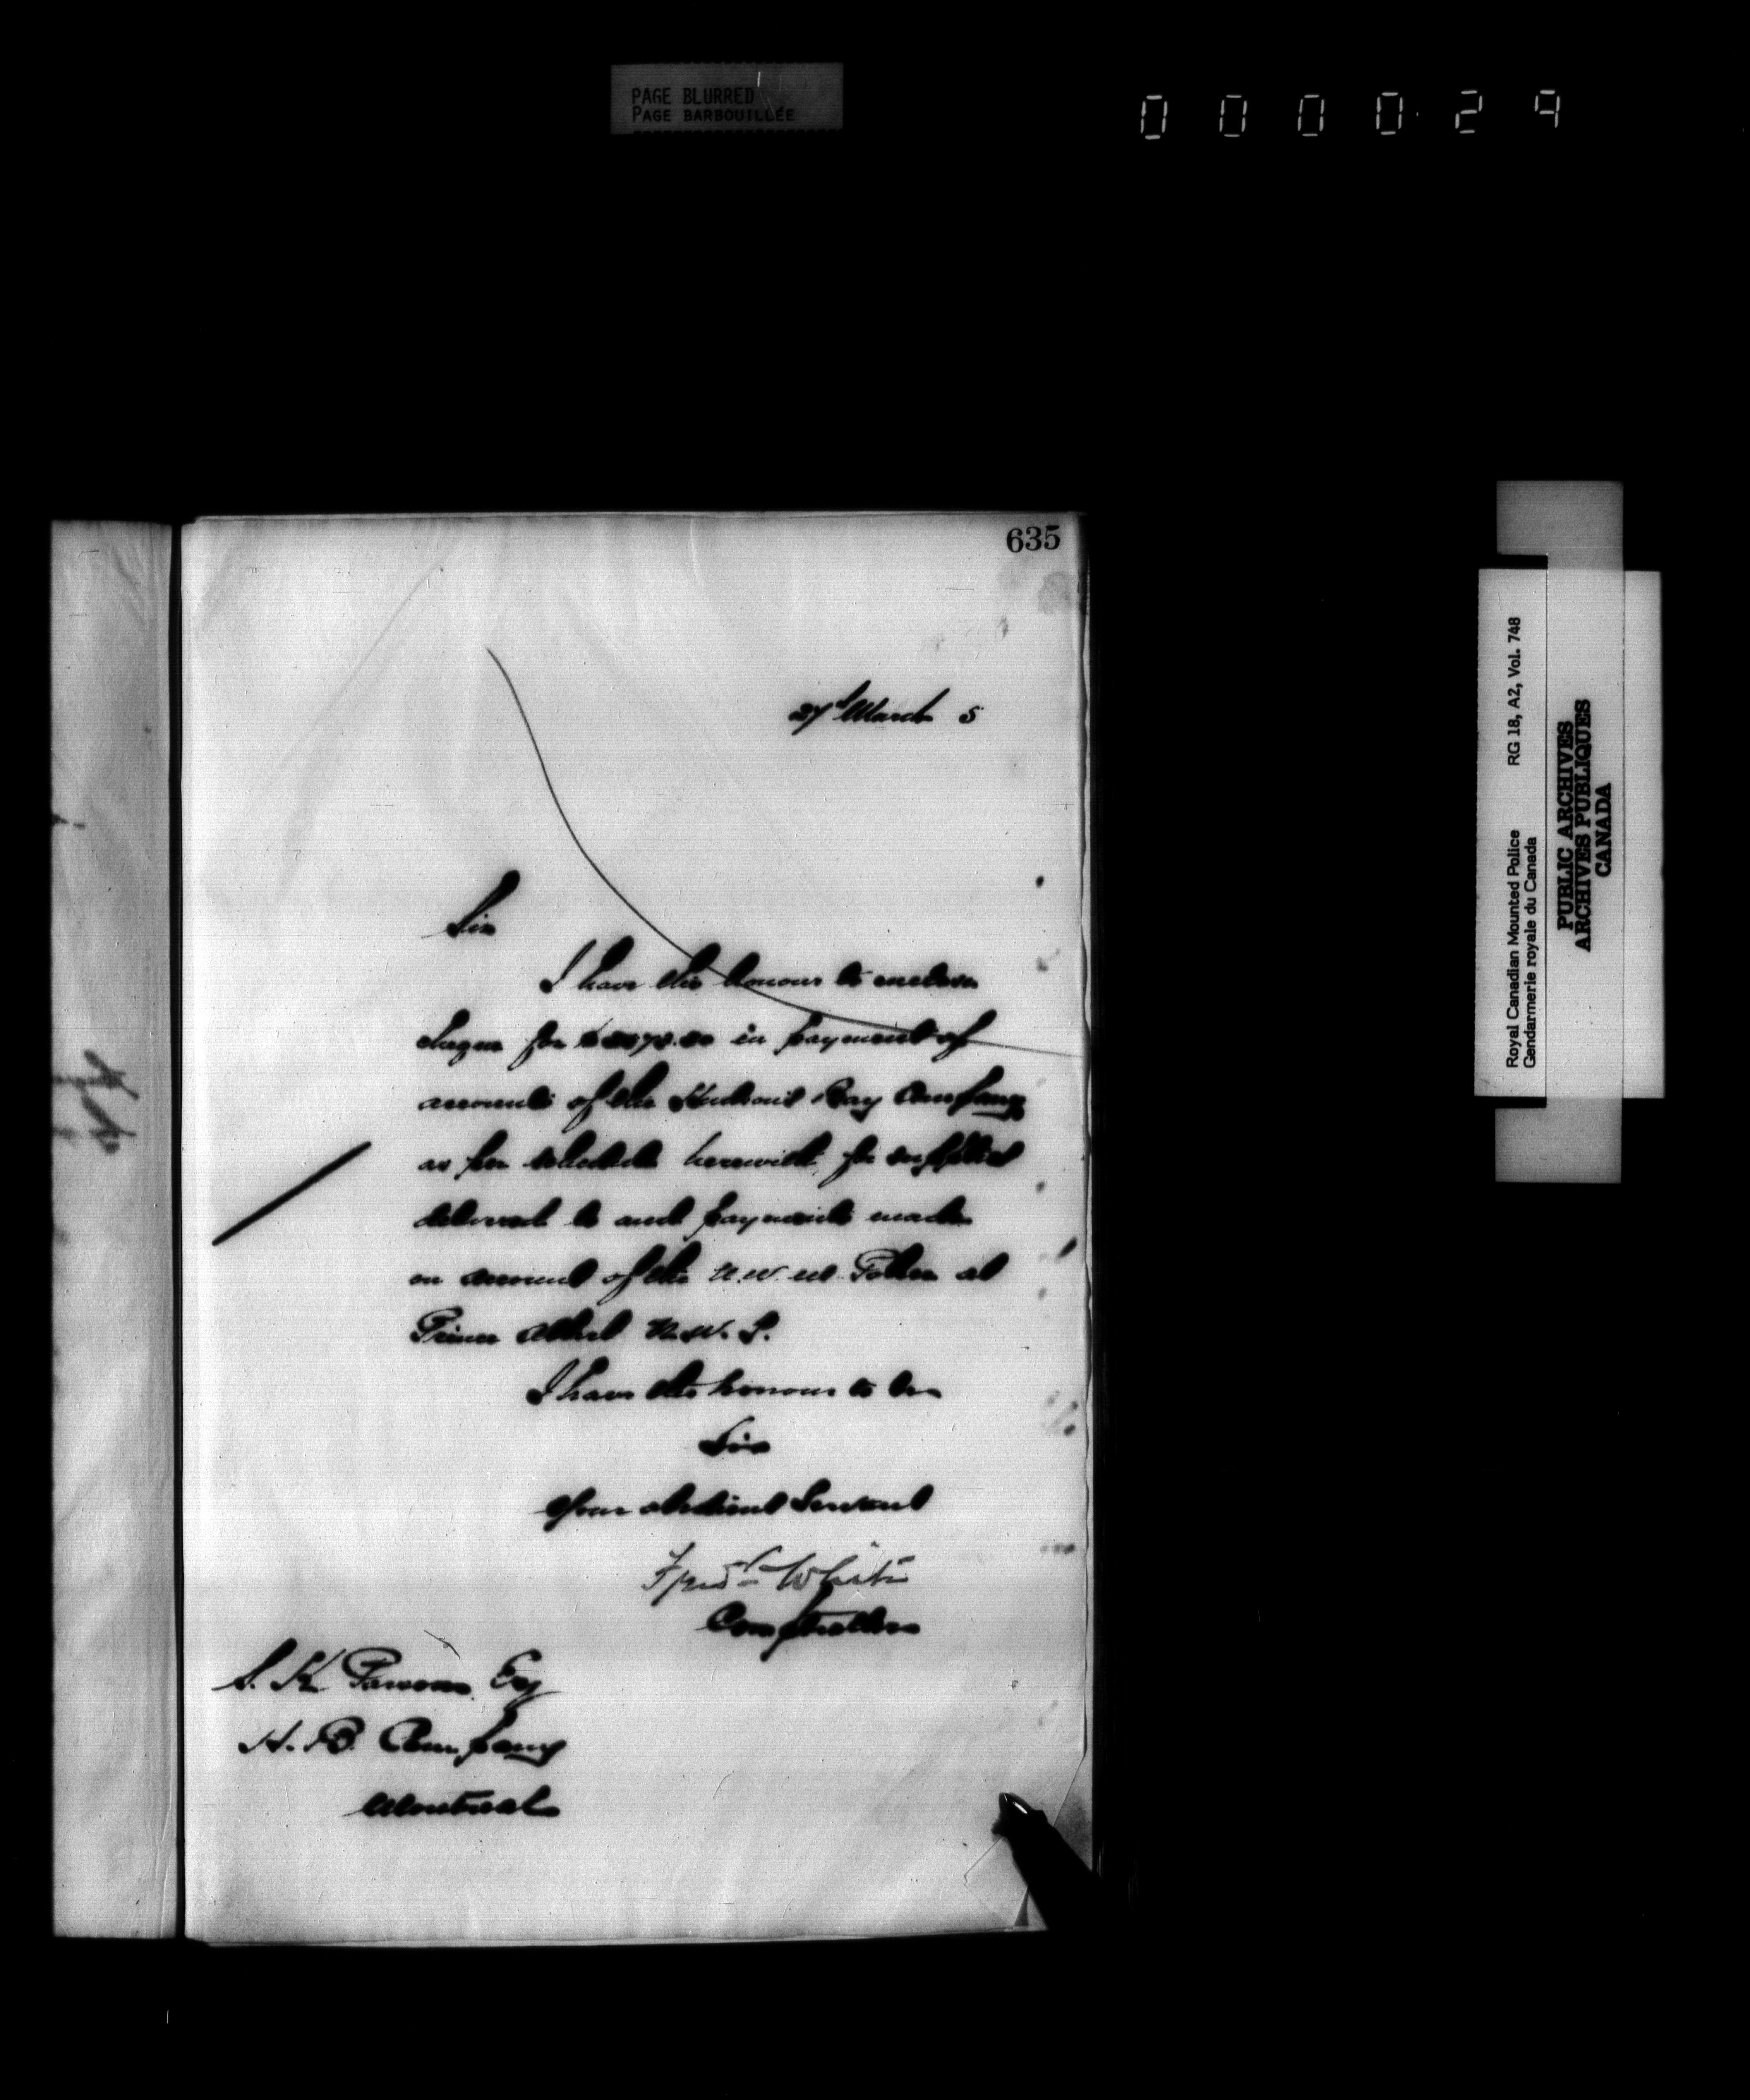 PAGE BLURRED
PAGE BARBOUILLÉE
000029
635
27th March 5
Sir
I have the honour to enclose
cheque for in payment of
accounts of the Hudson's Bay Company
as per schedule herewith, for supplies
delivered to and payments made
on account of the N.W.M. Police at
Prince Albert N.W.T.
I have the honour to be
Sir
Your obedient Servant
Fred White
Comptroller
S. K Parsons Esq
H. B. Company
Montreal
Royal Canadian Mounted Police RG 18, A2, Vol. 748
Gendarmerie royale du Canada
PUBLIC ARCHIVES
ARCHIVES PUBLIQUES
CANADA